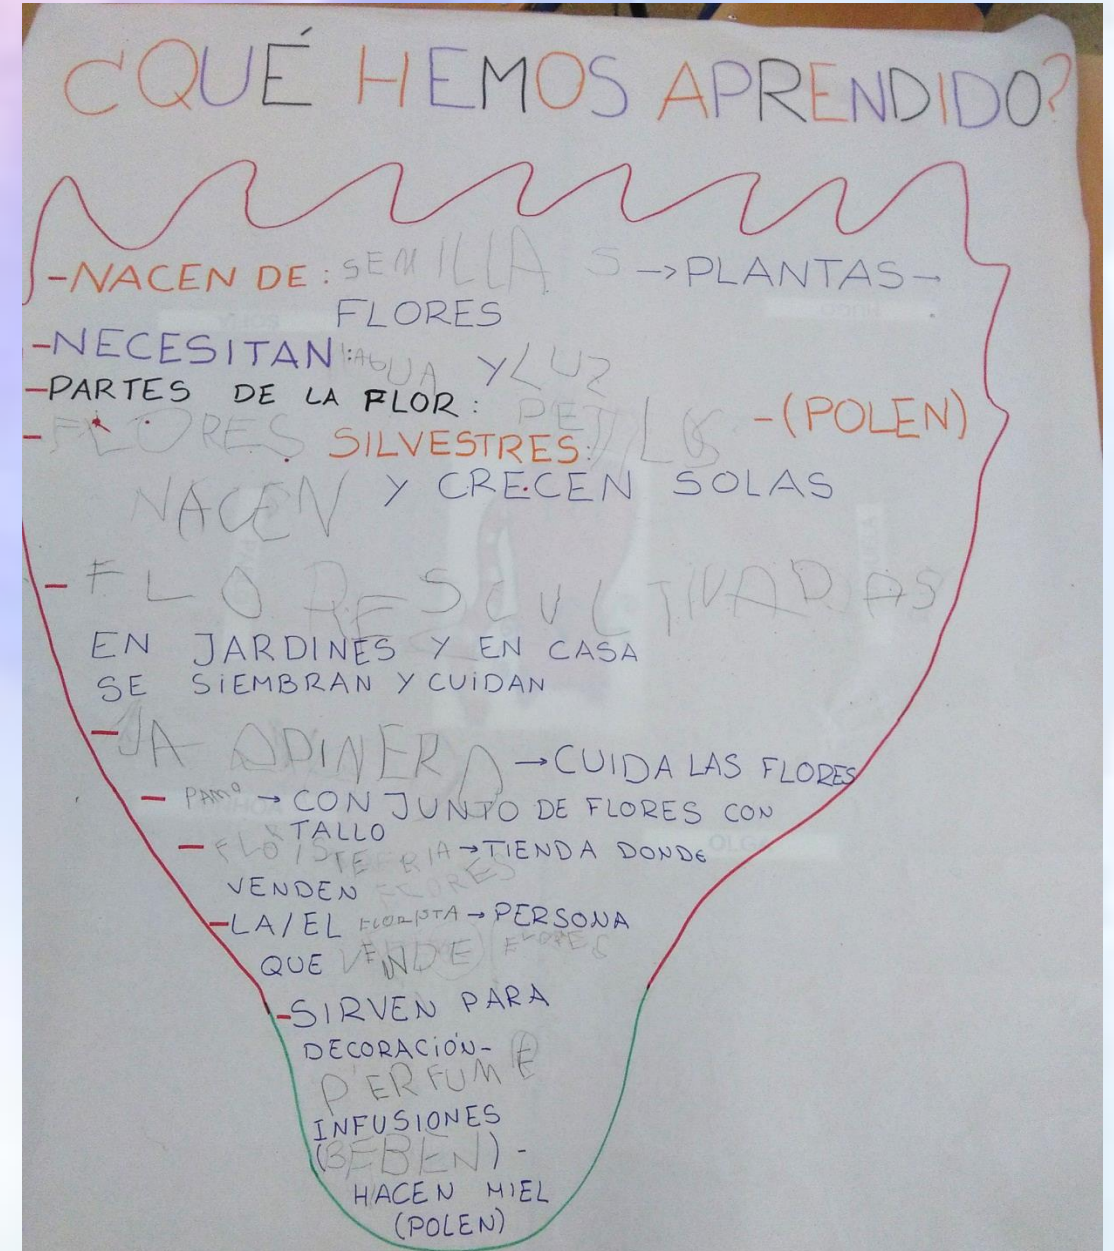 ¿QUÉ HEMOS APRENDIDO?
-NACEN DE: SEMILLAS → PLANTAS -
FLORES
-NECESITAN: AGUA Y LUZ
-PARTES DE LA FLOR: PETALOS - (POLEN)
- FLORES SILVESTRES:
NACEN Y CRECEN SOLAS
- FLORES CULTIVADAS
EN JARDINES Y EN CASA
SE SIEMBRAN Y CUIDAN
- → CUIDA LAS FLORES
- → CONJUNTO DE FLORES CON
TALLO
- → TIENDA DONDE
VENDEN FLORES
-LA/EL FLORISTA → PERSONA
QUE VENDE FLORES
-SIRVEN PARA
DECORACIÓN-
PERFUME
INFUSIONES
(BEBEN) -
HACEN MIEL
(POLEN)